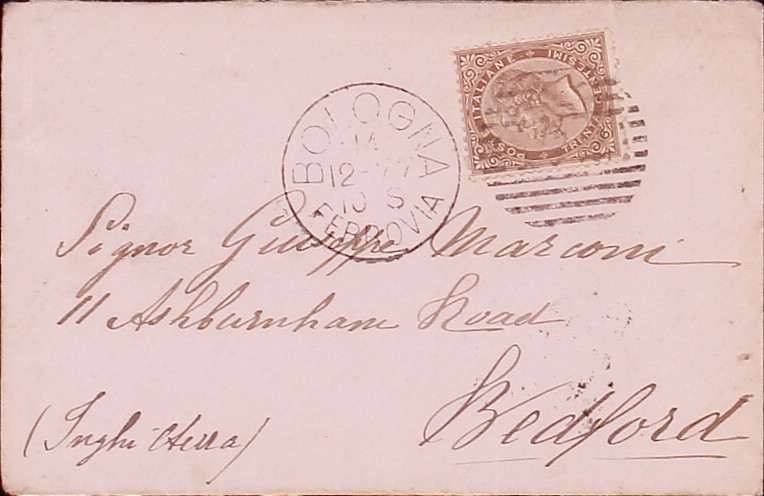 POSTE ITALIANE
TRENTA CENTESIMI
BOLOGNA
12-77
10 S
FERROVIA
Signor Giuseppe Marconi
11 Ashburnham Road
Bedford
(Inghilterra)